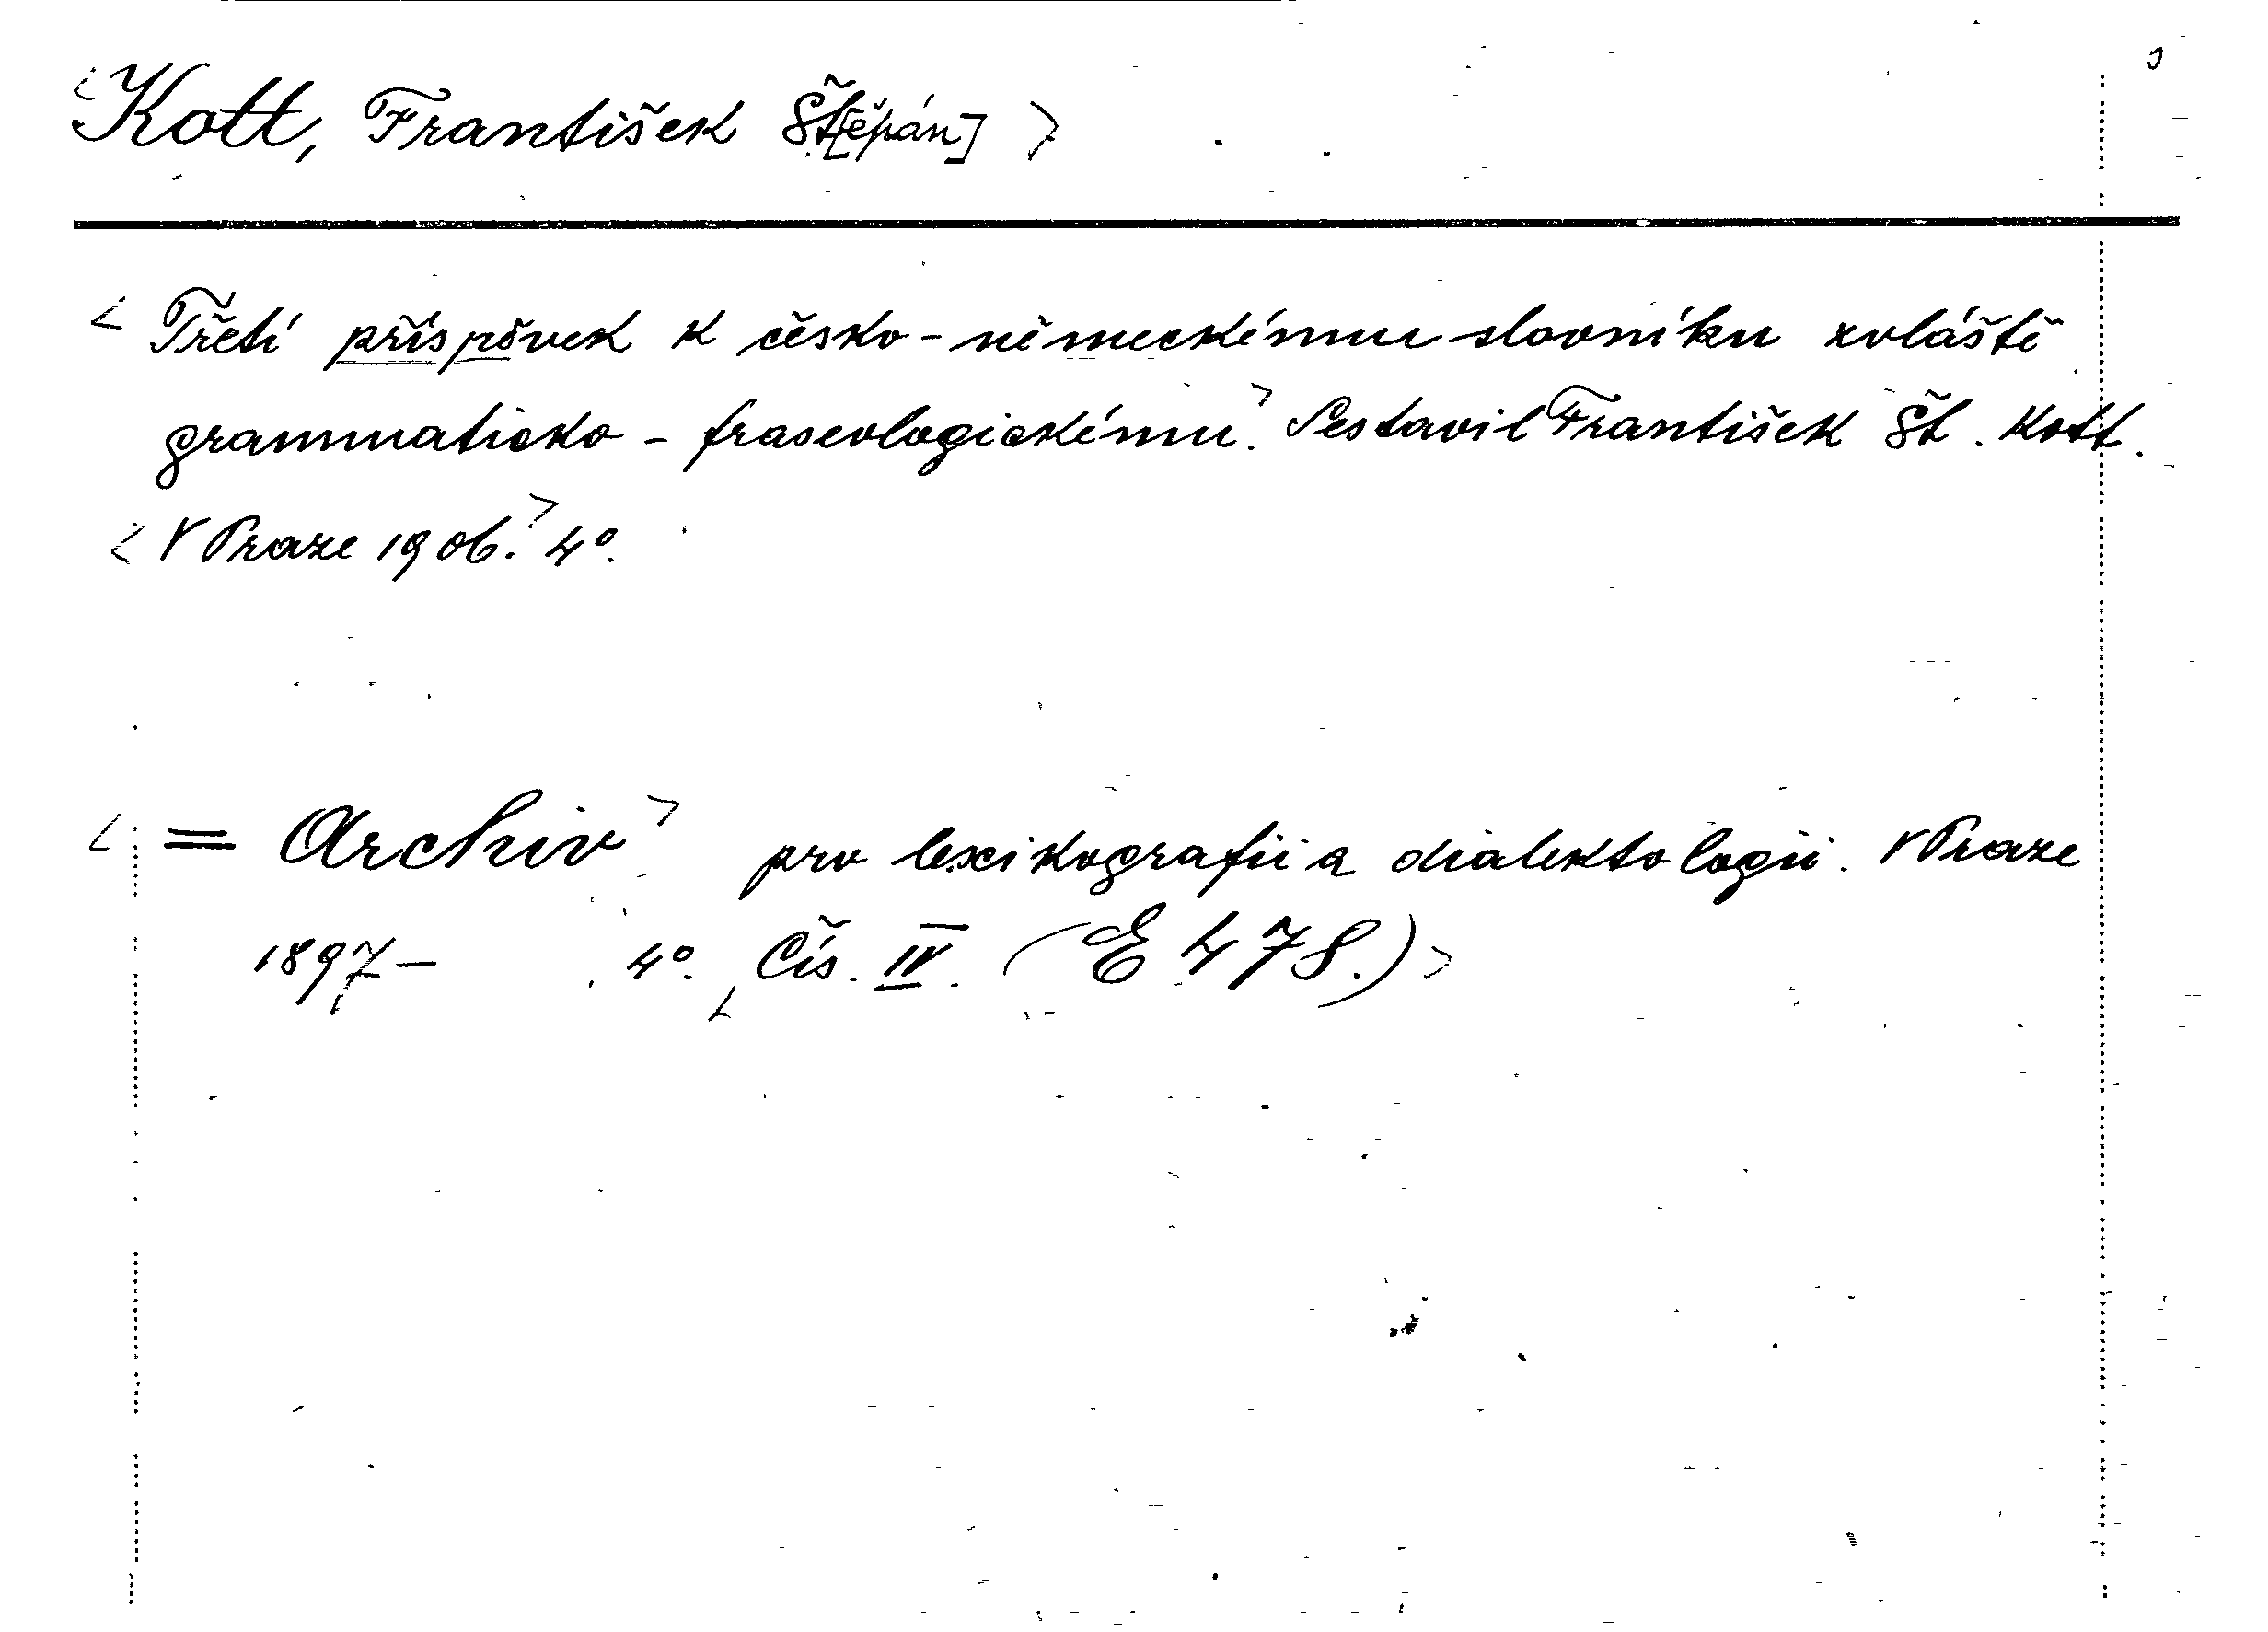 <Kott, František Št[ěpán]>
<Třetí příspěvek k česko-německému slovníku zvláště
grammaticko-fraseologickému.> Sestavil František Št. Kott.
<V Praze 1906.> 4°.
<= Archiv> pro lexikografii a dialektologii. V Praze
1897- 4°. <Čís. IV. (E 478.)>